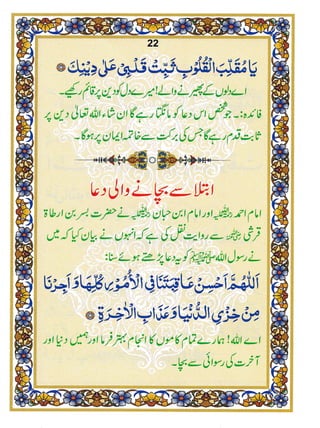 22
يَا مُقَلِّبَ الْقُلُوْبِ ثَبِّتْ قَلْبِيْ عَلٰى دِيْنِكَ
اے دلوں کے پھیرنے والے! میرے دل کو دین پر قائم رکھیے۔
فائدہ:۔ جو شخص اس دعا کو مانگتا رہے گا ان شاء اللہ تعالیٰ دین پر
ثابت قدم رہے گا جس کی برکت سے خاتمہ ایمان پر ہوگا۔
ابتلا سے بچانے والی دعا
امام احمد رحمۃ اللہ علیہ اور امام ابن حبان رحمۃ اللہ علیہ نے حضرت بسر بن ارطاۃ
قرشی رضی اللہ عنہ سے روایت نقل کی ہے کہ انہوں نے بیان کیا کہ میں
نے رسول اللہ ﷺ کو یہ دعا پڑھتے ہوئے سنا:
اَللّٰهُمَّ اَحْسِنْ عَاقِبَتَنَا فِى الْاُمُوْرِ كُلِّهَا وَ اَجِرْنَا
مِنْ خِزْىِ الدُّنْيَا وَ عَذَابِ الْاٰخِرَةِ
اے اللہ! ہمارے تمام کاموں کا انجام بہتر فرما اور ہمیں دنیا اور
آخرت کی رسوائی سے بچا۔